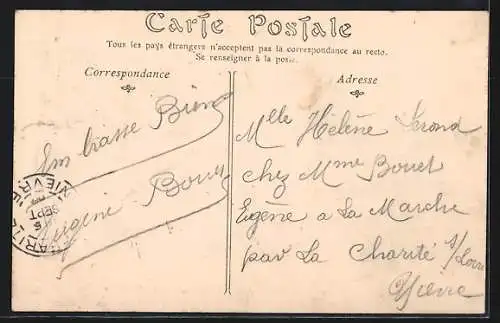 Carte Postale
Tous les pays étrangers n'acceptent pas la correspondance au recto.
Se renseigner à la poste.
Correspondance
Adresse
Embrasse Bien
Eugène Bouet
Mlle Hélène
chez Mme Bouet
Eugène a La Marche
par La Charité s/Loire
Nièvre